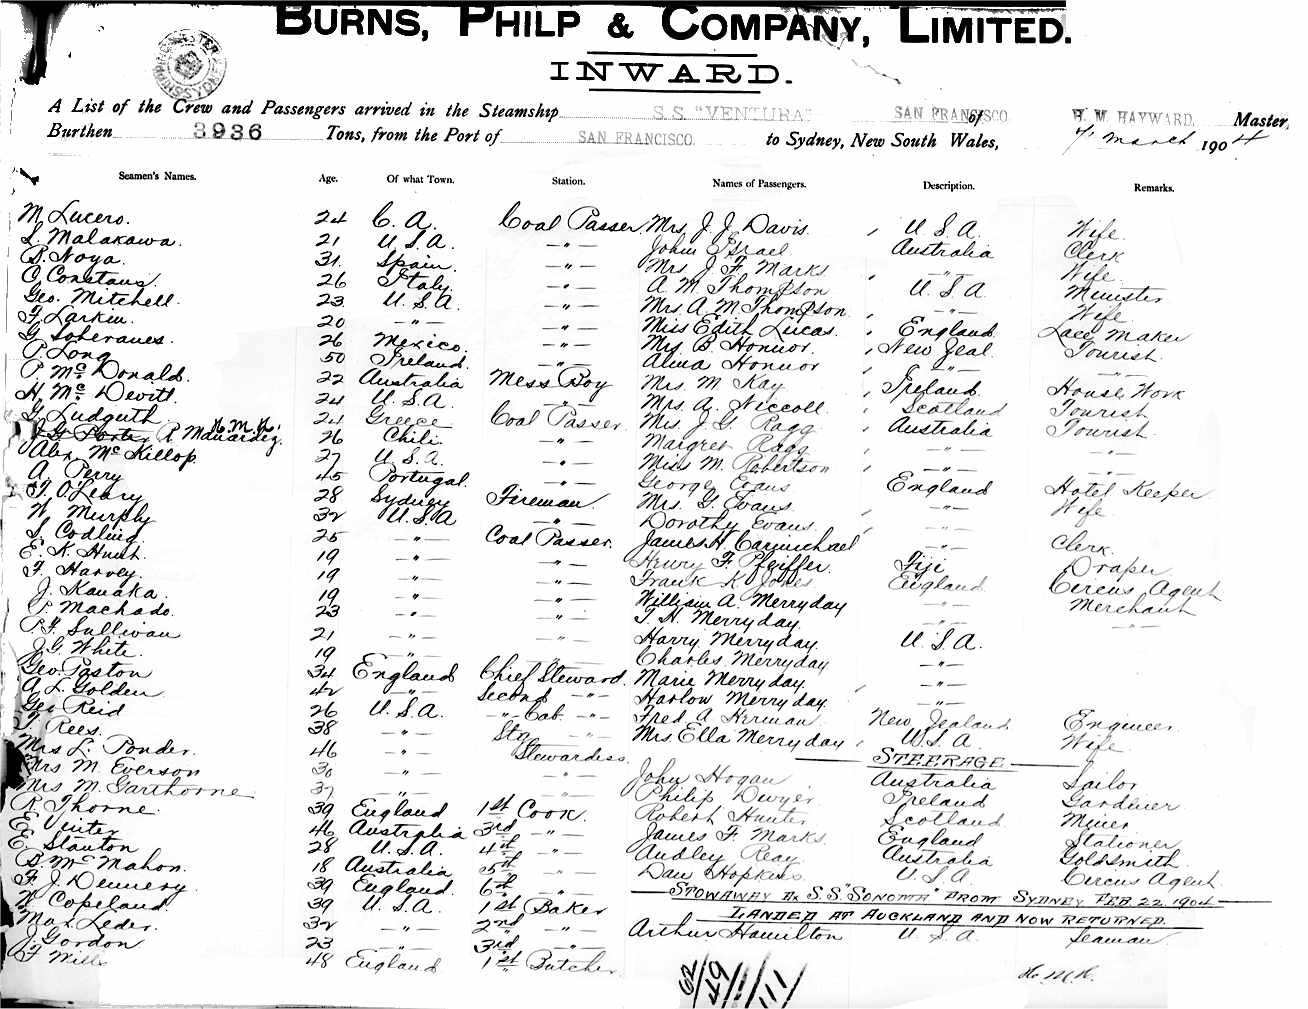 BURNS, PHILP & COMPANY, LIMITED.
INWARD.
A List of the Crew and Passengers arrived in the Steamship S.S. "VENTURA" SAN FRANCISCO of H. M. HAYWARD, Master,
Burthen 3936 Tons, from the Port of SAN FRANCISCO. to Sydney, New South Wales, 7 March 1904
Seamen's Names. Age. Of what Town. Station. Names of Passengers. Description. Remarks.
M Lucero. 24 C. A. Coal Passer Mrs. J. J. Davis. U S A. Wife.
S. Malakawa. 21 U. S. A. —"— John Israel Australia Clerk
B. Noya. 31. Spain. —"— Mrs J. F. Marks —"— Wife
C Constans. 26 Italy. —"— A. M. Thompson U. S. A. Minister
Geo. Mitchell. 23 U. S. A. —"— Mrs A. M Thompson —"— Wife
F. Larkin. 20 —"— —"— Miss Edith Lucas. England Lace Maker
G. Soberanes. 26 Mexico. —"— Mrs B. Honnor. New Zeal. Tourist.
P. Long 50 Ireland. —"— Alma Honnor —"— —"—
P. McDonald. 22 Australia Mess Boy Mrs. M. Kay Ireland. House Work
H. McDevitt. 24 U. S. A. —"— Mrs. A. Niccoll Scotland Tourist
G. Ludguth 24 Greece Coal Passer. Mrs. J. G. Ragg Australia Tourist.
J G Porter R Manardez. H.M.H. 26 Chili —"— Margret Ragg —"— —"—
Alex McKillop. 27 U. S. A. —"— Miss M. Robertson —"— —"—
A. Perry 45 Portugal. —"— George Evans England Hotel Keeper
T. O'Leary 28 Sydney Fireman Mrs. G. Evans —"— Wife
W. Murphy 32 U. S. A —"— Dorothy Evans —"—
S. Codling. 25 —"— Coal Passer. James H. Carmichael —"— Clerk.
E. K. Hush. 19 —"— —"— Henry F. Pfeiffer. Fiji Draper
F. Harvey. 19 —"— —"— Frank K Jones England Circus Agent
J. Kanaka. 19 —"— —"— William A. Merryday —"— Merchant
P. Machado. 23 —"— —"— T. H. Merryday. —"— —"—
P. F. Sullivan 21 —"— —"— Harry Merryday. U. S. A.
J. G. White. 19 —"— —"— Charles Merryday —"—
Geo. Paston 34 England Chief Steward. Marie Merryday —"—
A. L. Golden 42 —"— Second —"— Harlow Merryday —"—
Geo Reid 26 U. S. A. —"— Cab. —"— Fred A Herman New Zealand Engineer
T. Rees. 38 —"— Stg —"— Mrs Ella Merryday U. S. A. Wife
Mrs L. Ponder. 46 —"— Stewardess. STEERAGE
Mrs M. Everson 30 —"— —"— John Hogan Australia Sailor
Mrs M. Garthorne 37 —"— —"— Philip Dwyer Ireland Gardiner
R. Thorne. 39 England 1st Cook. Robert Hunter Scotland Miner
E Vinter 46 Australia 3rd —"— James F. Marks England Stationer
E. Stanton 28 U. S. A. 4th —"— Audley Reay Australia Goldsmith
B. McMahon. 18 Australia 5th —"— Dan Hopkins U. S. A. Circus Agent.
F. J. Dennery. 39 England. 6th —"— STOWAWAY Ex S.S. "SONOMA" FROM SYDNEY FEB. 22. 1904
W Copeland. 39 U. S. A. 1st Baker LANDED AT AUCKLAND AND NOW RETURNED.
Max Leder. 32 —"— 2nd —"— Arthur Hamilton U. S. A. Seaman
J Gordon 23 —"— 3rd —"—
F Mills 48 England 1st Butcher H. M. H.
62/49/11/111/